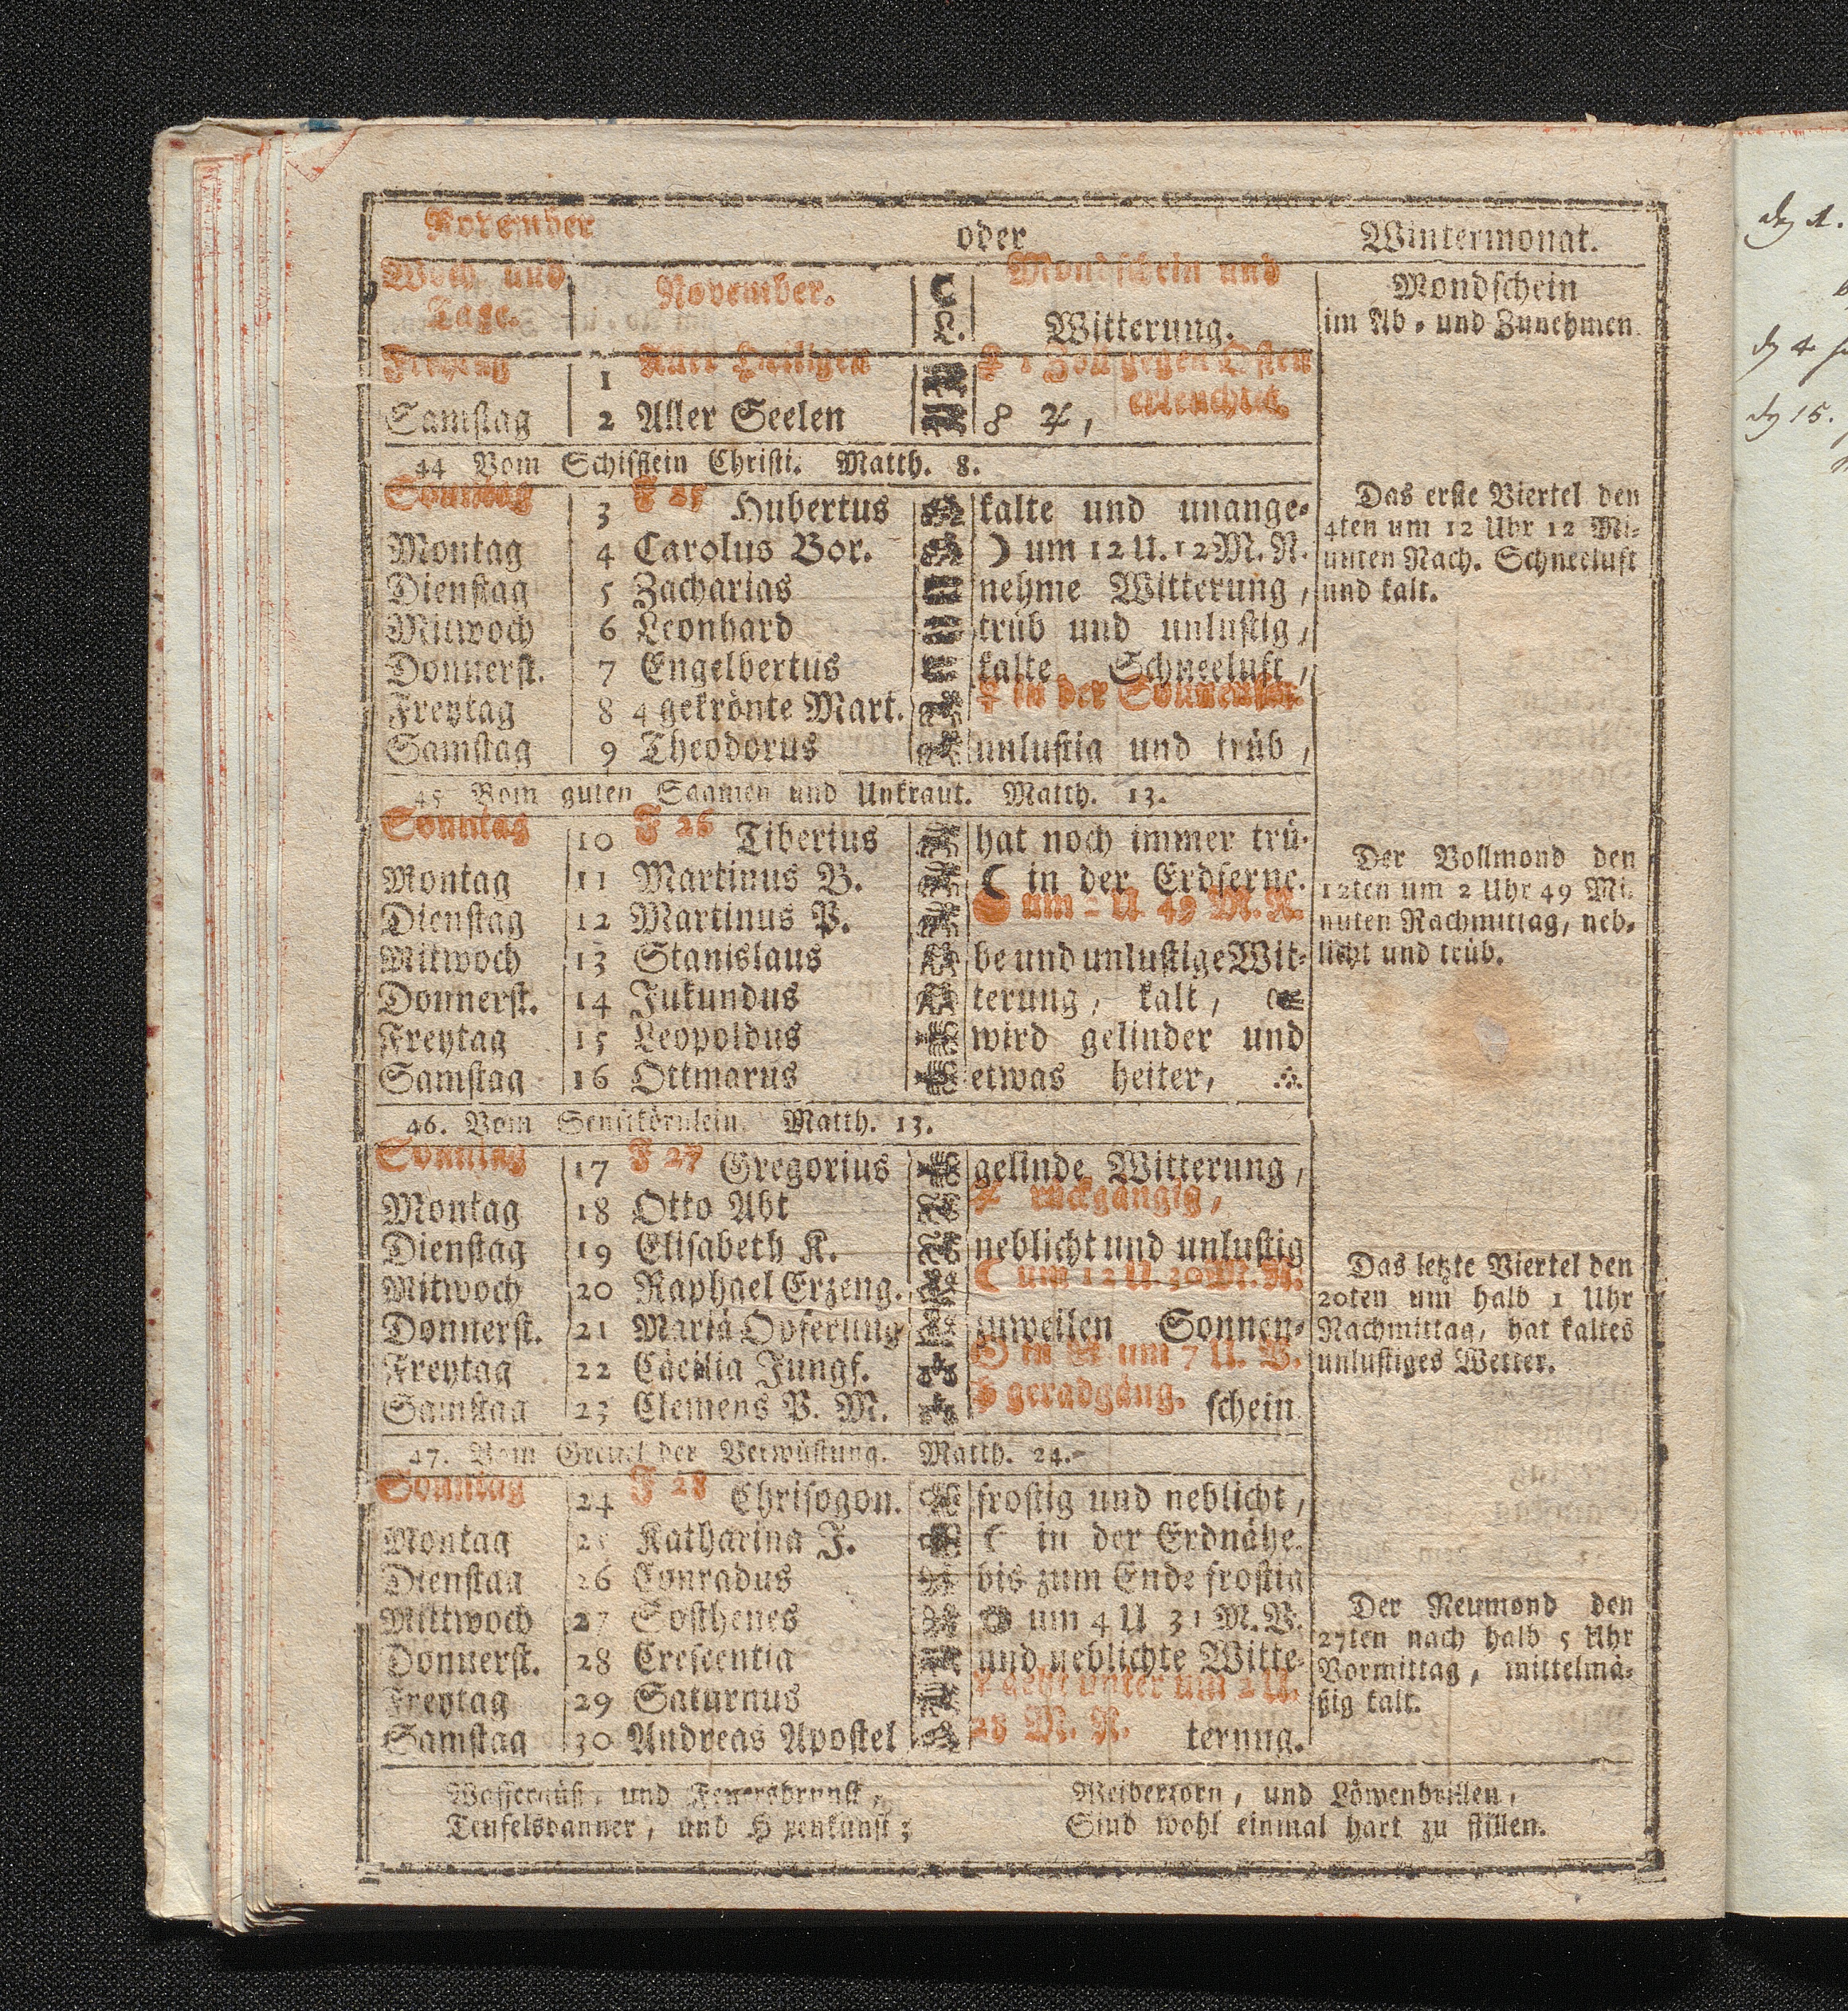 November oder Wintermonat.
Woch und Tage. November. ☾ L. Mondschein und Witterung. Mondschein im Ab- und Zunehmen
Freytag 1 Aller Heiligen ☿ 1 Zoll gegen Osten
Samstag 2 Aller Seelen ☍ ♃, erleuchtet.
44 Vom Schifflein Christi. Matth. 8.
Sonntag 3 F 25 Hubertus kalte und unange-
Montag 4 Carolus Bor. ☽ um 12 U. 12 M. N.
Dienstag 5 Zacharias nehme Witterung,
Mitwoch 6 Leonhard trüb und unlustig,
Donnerst. 7 Engelbertus kalte Schneeluft,
Freytag 8 4 gekrönte Mart. in der Sonnen
Samstag 9 Theodorus unlustig und trüb,
45 Vom guten Saamen und Unkraut. Matth. 13.
Sonntag 10 F 26 Tiberius hat noch immer trü-
Montag 11 Martinus B. ☾ in der Erdferne.
Dienstag 12 Martinus P. um 2 U. 49 M. N.
Mitwoch 13 Stanislaus be und unlustige Wit-
Donnerst. 14 Jukundus terung, kalt,
Freytag 15 Leopoldus wird gelinder und
Samstag 16 Ottmarus etwas heiter,
46. Vom Senfkörnlein. Matth. 13.
Sonntag 17 F 27 Gregorius gelinde Witterung,
Montag 18 Otto Abt ♃ rückgängig,
Dienstag 19 Elisabeth K. neblicht und unlustig
Mitwoch 20 Raphael Erzeng. ☾ um 12 U. 30 M. N.
Donnerst. 21 Mariä Opferung zuweilen Sonnen-
Freytag 22 Cäcilia Jungf. ☉ in ♐ um 7 U. V.
Samstag 23 Clemens P. M. ♄ geradgäng. schein
47. Vom Greuel der Verwüstung. Matth. 24.
Sonntag 24 F 28 Chrisogon. frostig und neblicht,
Montag 25 Katharina J. ☾ in der Erdnähe.
Dienstag 26 Conradus bis zum Ende frostig
Mittwoch 27 Sosthenes um 4 U 31 M. V.
Donnerst. 28 Crescentia und neblichte Witte-
Freytag 29 Saturnus geht unter um 2 U.
Samstag 30 Andreas Apostel 28 M. N. terung.
Das erste Viertel den
4ten um 12 Uhr 12 Mi-
nuten Nach. Schneeluft
und kalt.
Der Vollmond den
12ten um 2 Uhr 49 Mi.
nuten Nachmittag, neb-
licht und trüb.
Das letzte Viertel den
20ten um halb 1 Uhr
Nachmittag, hat kaltes
unlustiges Wetter.
Der Neumond den
27ten nach halb 5 Uhr
Vormittag, mittelmä-
ßig kalt.
Wassergüß, und Feuersbrunst,
Teufelsbanner, und Hexenkunst;
Weiberzorn, und Löwenbrillen,
Sind wohl einmal hart zu stillen.
1.
4
15.